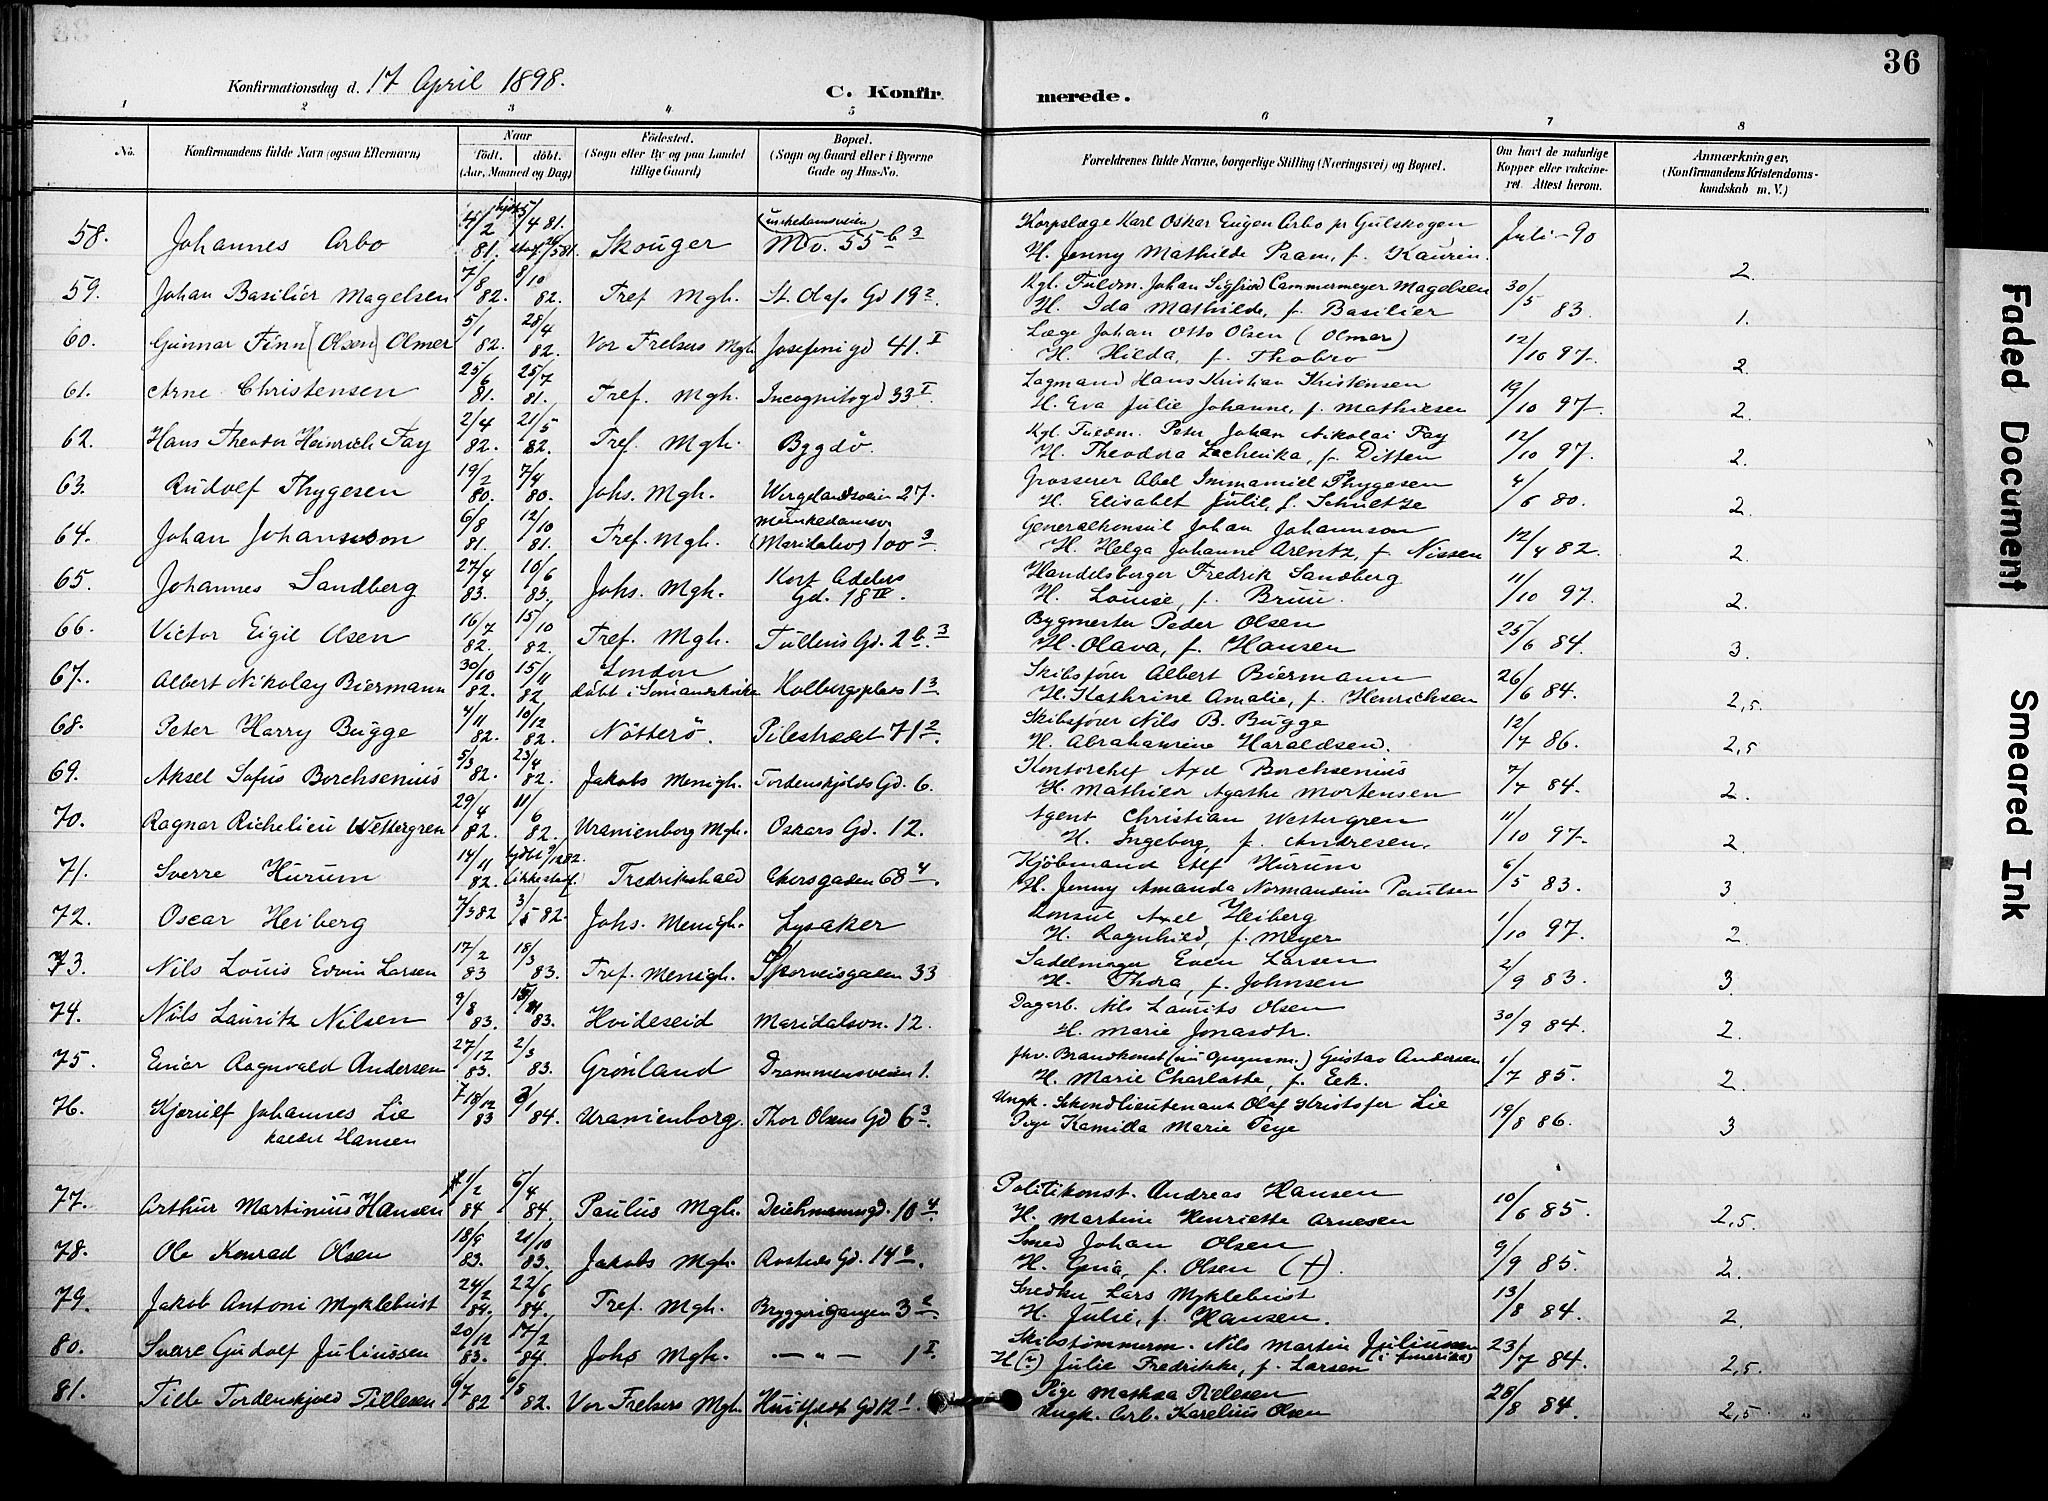 36
Konfirmationsdag d. 17 April 1898.
C. Konfir merede.
1 2 3 4 5 6 7 8
No. Konfirmandens fulde Navn (ogsaa Efternavn) Naar Födt. döbt. (Aar, Maaned og Dag) Födested. (Sogn eller By og paa Landet tillige Gaard) Bopæl. (Sogn og Gaard eller i Byerne Gade og Hus-No. Forældrenes fulde Navne, borgerlige Stilling (Næringsvei) og Bopæl. Om havt de naturlige Kopper eller vakcineret. Attest herom. Anmærkninger, (Konfirmandens Kristendomskundskab m. V.)
58. Johannes Arbo 81. 5/4 81. Skouger 55 b 3 Korpslæge Karl Oskar Eugen Arbo pr Gulskogen Juli - 90
H. Jenny Mathilde Paam, f. Kaurin. 2.
59. Johan Basilier Magelsen 7/8 82. 8/10 82. Tref Mgh. St. Olafs Gd 19 2. Kgl. Fuldm. Johan Sigfrid Cammermeyer Magelsen 30/5 83.
H. Ida Mathilde, f. Basilier 1.
60. Gunnar Finn (Olsen) Olmer 5/1 82. 28/4 82. Vor Frelsers Mgh. Josefinigd 41. I Læge Johan Otto Olsen (Olmer) 12/10 97.
H. Hilda, f. Thobro 2.
61. Arne Christensen 25/6 81. 25/7 81. Tref. Mgh. Incognitogd 33 I. Lagmand Hans Kristian Kristensen 19/10 97.
H. Eva Julie Johanne, f. Mathiesen 2.
62. Hans Theodor Heinrich Fay 2/4 82. 21/5 82. Tref. Mgh. Bygdö. Kgl. Fuldm. Peter Johan Nikolai Fay 12/10 97.
H. Theodora f. Ditten 2.
63. Rudolf Thygesen 19/2 80. 7/4 80. Johs. Mgh. Wergelandsveien 27. Grosserer Abel Immanuel Thygesen 4/6 80.
H. Elisabet Julie, f. Schultze 2.
64. Johan Johannson 6/8 81. 12/10 81. Tref. Mgh. Munkedamsv (Maridalsv) 100 3. Generalkonsul Johan Johannson 12/4 82.
H. Helga Johanne Arentz, f. Nissen 2.
65. Johannes Sandberg 27/4 83. 10/6 83. Johs. Mgh. Kort Adelers Gd. 18 IV. Handelsborger Fredrik Sandberg 11/10 97.
H. Louise, f. Bruu. 2.
66. Victor Eigil Olsen 16/7 82. 15/10 82. Tref. Mgh. Tullins Gd. 2 b. 3 Bygmester Peder Olsen 25/6 84.
H. Olava, f. Hansen 3.
67. Albert Nikolay Biermann 30/10 82. 15/11 82. London döbt i Holbergsplads 1 3. Skibsfører Albert Biermann 26/6 84.
H. Kathrine Amalie, f. Henrichsen 2,5.
68. Peter Harry Bugge 4/11 82. 10/12 82. Nötterö. Pilestrædet 71 2. Skibsfører Nils B. Bugge 12/7 86.
H. Abrahamine Haraldsen. 2,5
69. Aksel Sofus Borchsenius 5/3 82. 23/4 82. Jakobs Menigh. Tordenskjolds Gd. 6. Kontorchef Axel Borchsenius 7/7 84.
H. Mathilde Agathe Mortensen 2.
70. Ragnar Richelieu Wettergren 29/4 82. 11/6 82. Uranienborg Mgh. Oskars Gd. 12. Agent Christian Wettergren 11/10 97.
H. Ingeborg, f. Andresen. 2.
71. Sverre Hurum 14/11 82. Fredrikshald Akersgaden 68 4. Kjöbmand Elef Hurum 6/5 83.
H. Jenny Amanda Normandine Paulsen 3.
72. Oscar Heiberg 7/3 82 3/5 82. Johs. Menigh. Lysaker Konsul Axel Heiberg 1/10 97.
H. Ragnhild, f. Meyer 2.
73. Nils Louis Edvin Larsen 17/2 83 18/3 83. Tref. Menigh. Sporveisgaden 33 Sadelmager Even Larsen 2/9 83.
H. Thora, f. Johnsen 3.
74. Nils Lauritz Nilsen 9/8 83. 83. Hvideseid Maridalsvn. 12. Dagarb. Nils Laurits Olsen 30/9 84.
H. Marie Jonasdtr. 2.
75. Einar Ragnvald Andersen 27/12 83. 2/3 83. Grönland Drammensveien 1. fhv. Brandkonst (nu Opsynsm.) Gustav Andersen 1/7 85.
H. Marie Charlotte, f. Eek. 2.
76. Kjerulf Johannes Lie kaldet Hansen 18/12 83 3/1 84. Uranienborg. Thor Olsens Gd 6 3. Ungk. Sekondlieutenant Olaf Kristofer Lie 19/8 86.
Pige Kamilla Marie Teye 3
77. Arthur Martinius Hansen 1/2 84 6/4 84. Paulus Mgh. Deichmannsgd. 10 4. Politikonst. Andreas Hansen 10/6 85.
H. Martine Henriette Arnesen 2,5.
78. Ole Konrad Olsen 18/9 83. 21/10 83. Jakobs Mgh. Rosteds Gd. 14 Smed Johan Olsen 9/9 85.
H. Gina, f. Olsen (†). 2.
79. Jakob Antoni Myklebust 24/2 84. 22/6 84. Tref. Mgh. Bryggerigangen 3 2 Snedker Lars Myklebust 13/8 84.
H. Julie, f. Hansen. 2.
80. Sverre Gudolf Juliussen 20/12 83. 17/2 84. Johs Mgh. — „ — 1 I. Skibstømmerm. Nils Martin Juliussen (i Amerika) 23/7 84.
H (?) Julie Fredrikke, f. Larsen 2,5.
81. Tille Tordenskjold Tillesen 6/7 82 82. Vor Frelsers Mgh. Huitfeldt Gd 12 1 Pige Mathea Tillesen 28/8 84.
Ungk. Arb. Karelius Olsen 2,5.
Faded Document
Smeared Ink